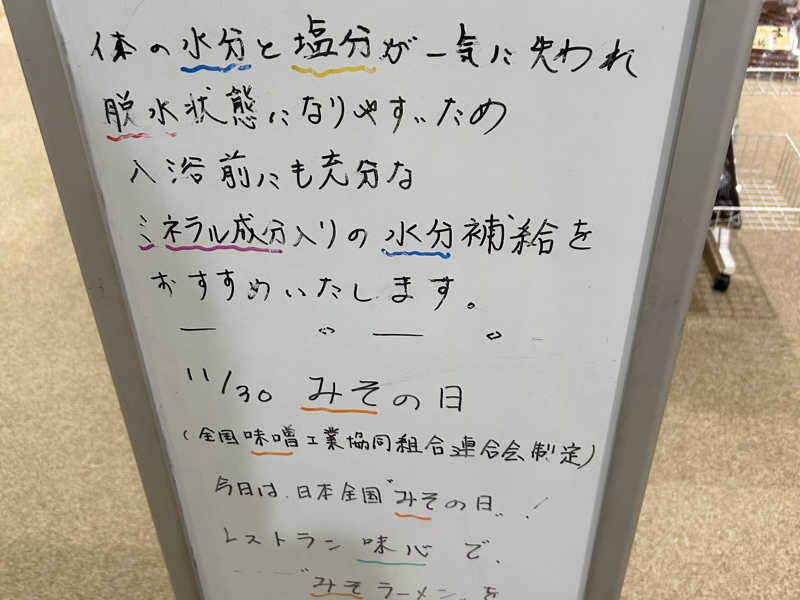 体の水分と塩分が一気に失われ
脱水状態になりやすいため
入浴前にも充分な
ミネラル成分入りの水分補給を
おすすめいたします。
11/30 みその日
(全国味噌工業協同組合連合会制定)
今日は、日本全国"みその日"!
レストラン味心で、
"みそラーメン"を